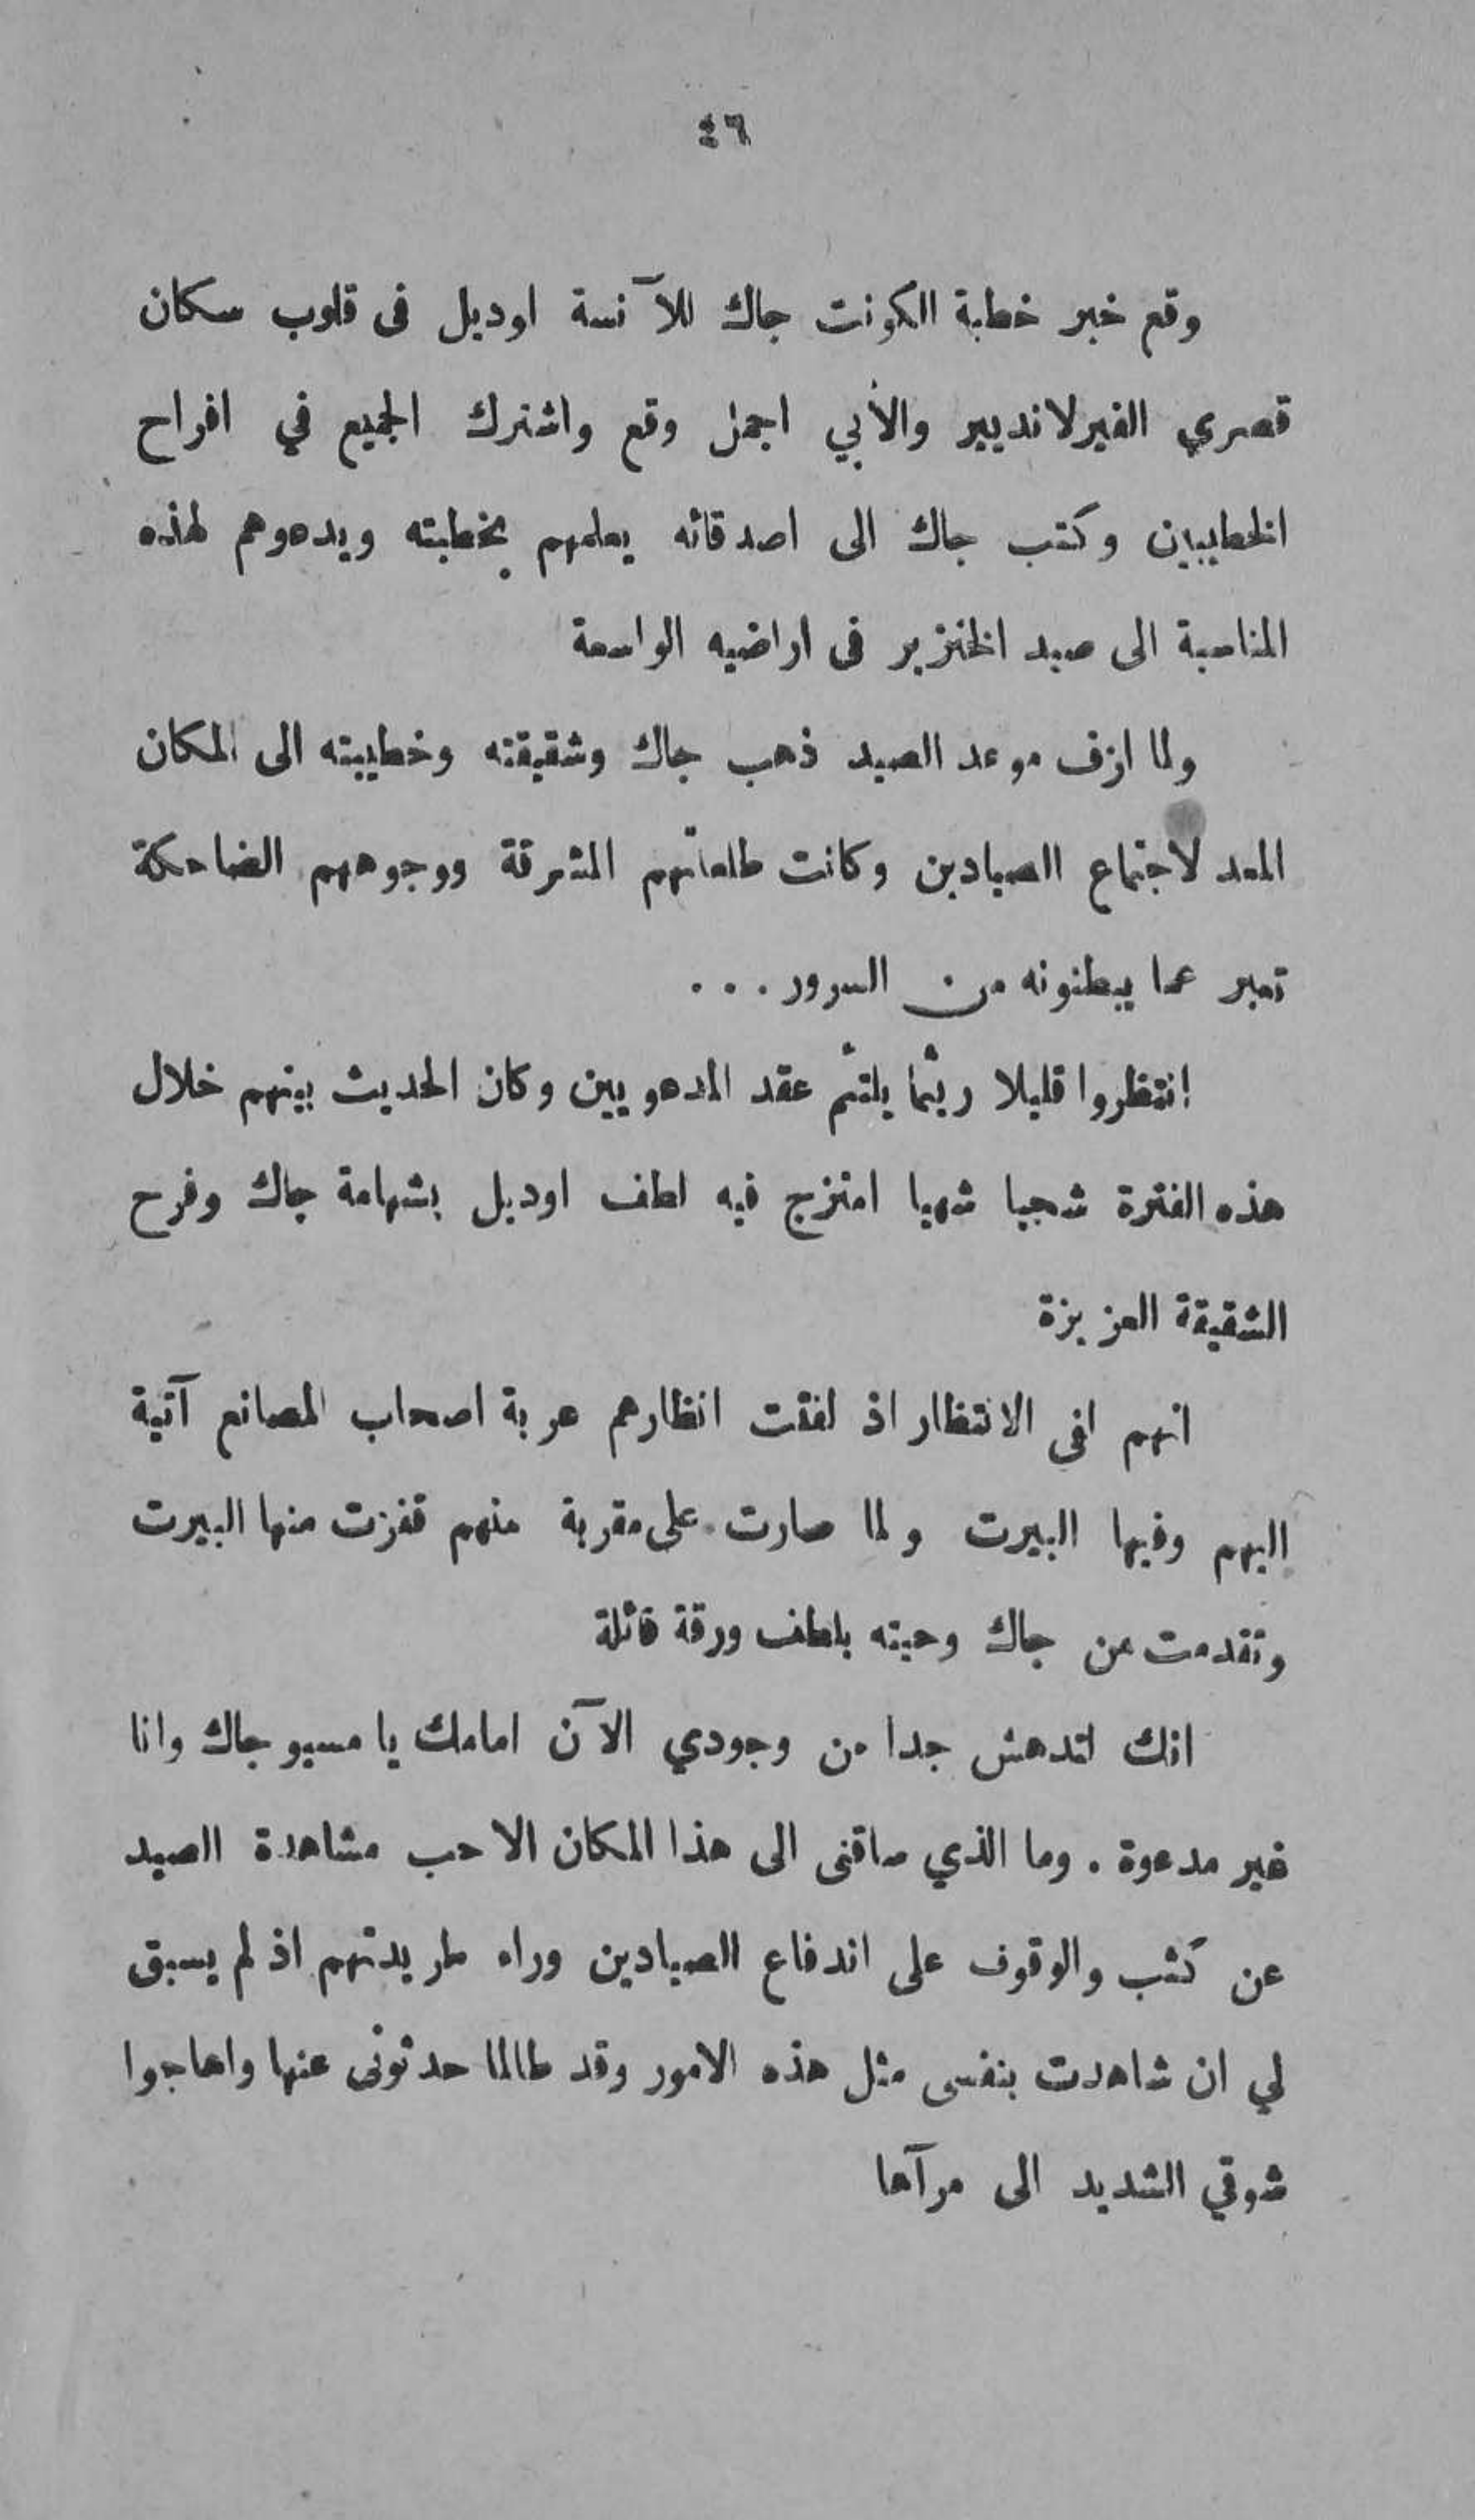 ٤٦
وقع خبر خطبة الكونت جاك للآنسة اوديل فى قلوب سكان
قصري الفيرلانديير والأبي اجمل وقع واشترك الجميع في افراح
الخطيبين وكتب جاك الى اصدقائه يعلمهم بخطبته ويدعوهم لهذه
المناسبة الى صيد الخنزير فى اراضيه الواسعة
ولما ازف موعد الصيد ذهب جاك وشقيقته وخطيبته الى المكان
المعد لاجتماع الصيادين وكانت طلعاتهم المشرقة ووجوههم الضاحكة
تعبر عما يبطنونه من السرور . . .
انتظروا قليلا ريثما يلتئم عقد المدعويين وكان الحديث بينهم خلال
هذه الفترة شجيا شهيا امتزج فيه لطف اوديل بشهامة جاك وفرح
الشقيقة العزيزة
انهم لفى الانتظار اذ لفتت انظارهم عربة اصحاب المصانع آتية
اليهم وفيها البيرت ولما صارت على مقربة منهم قفزت منها البيرت
وتقدمت من جاك وحيته بلطف ورقة قائلة
انك لتدهش جدا من وجودي الآن امامك يا مسيو جاك وانا
غير مدعوة . وما الذي ساقنى الى هذا المكان الا حب مشاهدة الصيد
عن كثب والوقوف على اندفاع الصيادين وراء طريدتهم اذ لم يسبق
لي ان شاهدت بنفسى مثل هذه الامور وقد طالما حدثونى عنها واهاجوا
شوقي الشديد الى مرآها